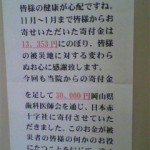 皆様の健康が心配ですね。
11月～1月まで皆様からお
寄せいただいた寄付金は
13,353円にのぼり、皆様
の被災地に対する変わら
ぬお心に感謝致します。
今回も当院からの寄付金
を足して30,000円岡山県
歯科医師会を通じ、日本赤
十字社に寄付させていた
だきました。このお金が被
災者の皆様の何かのお役